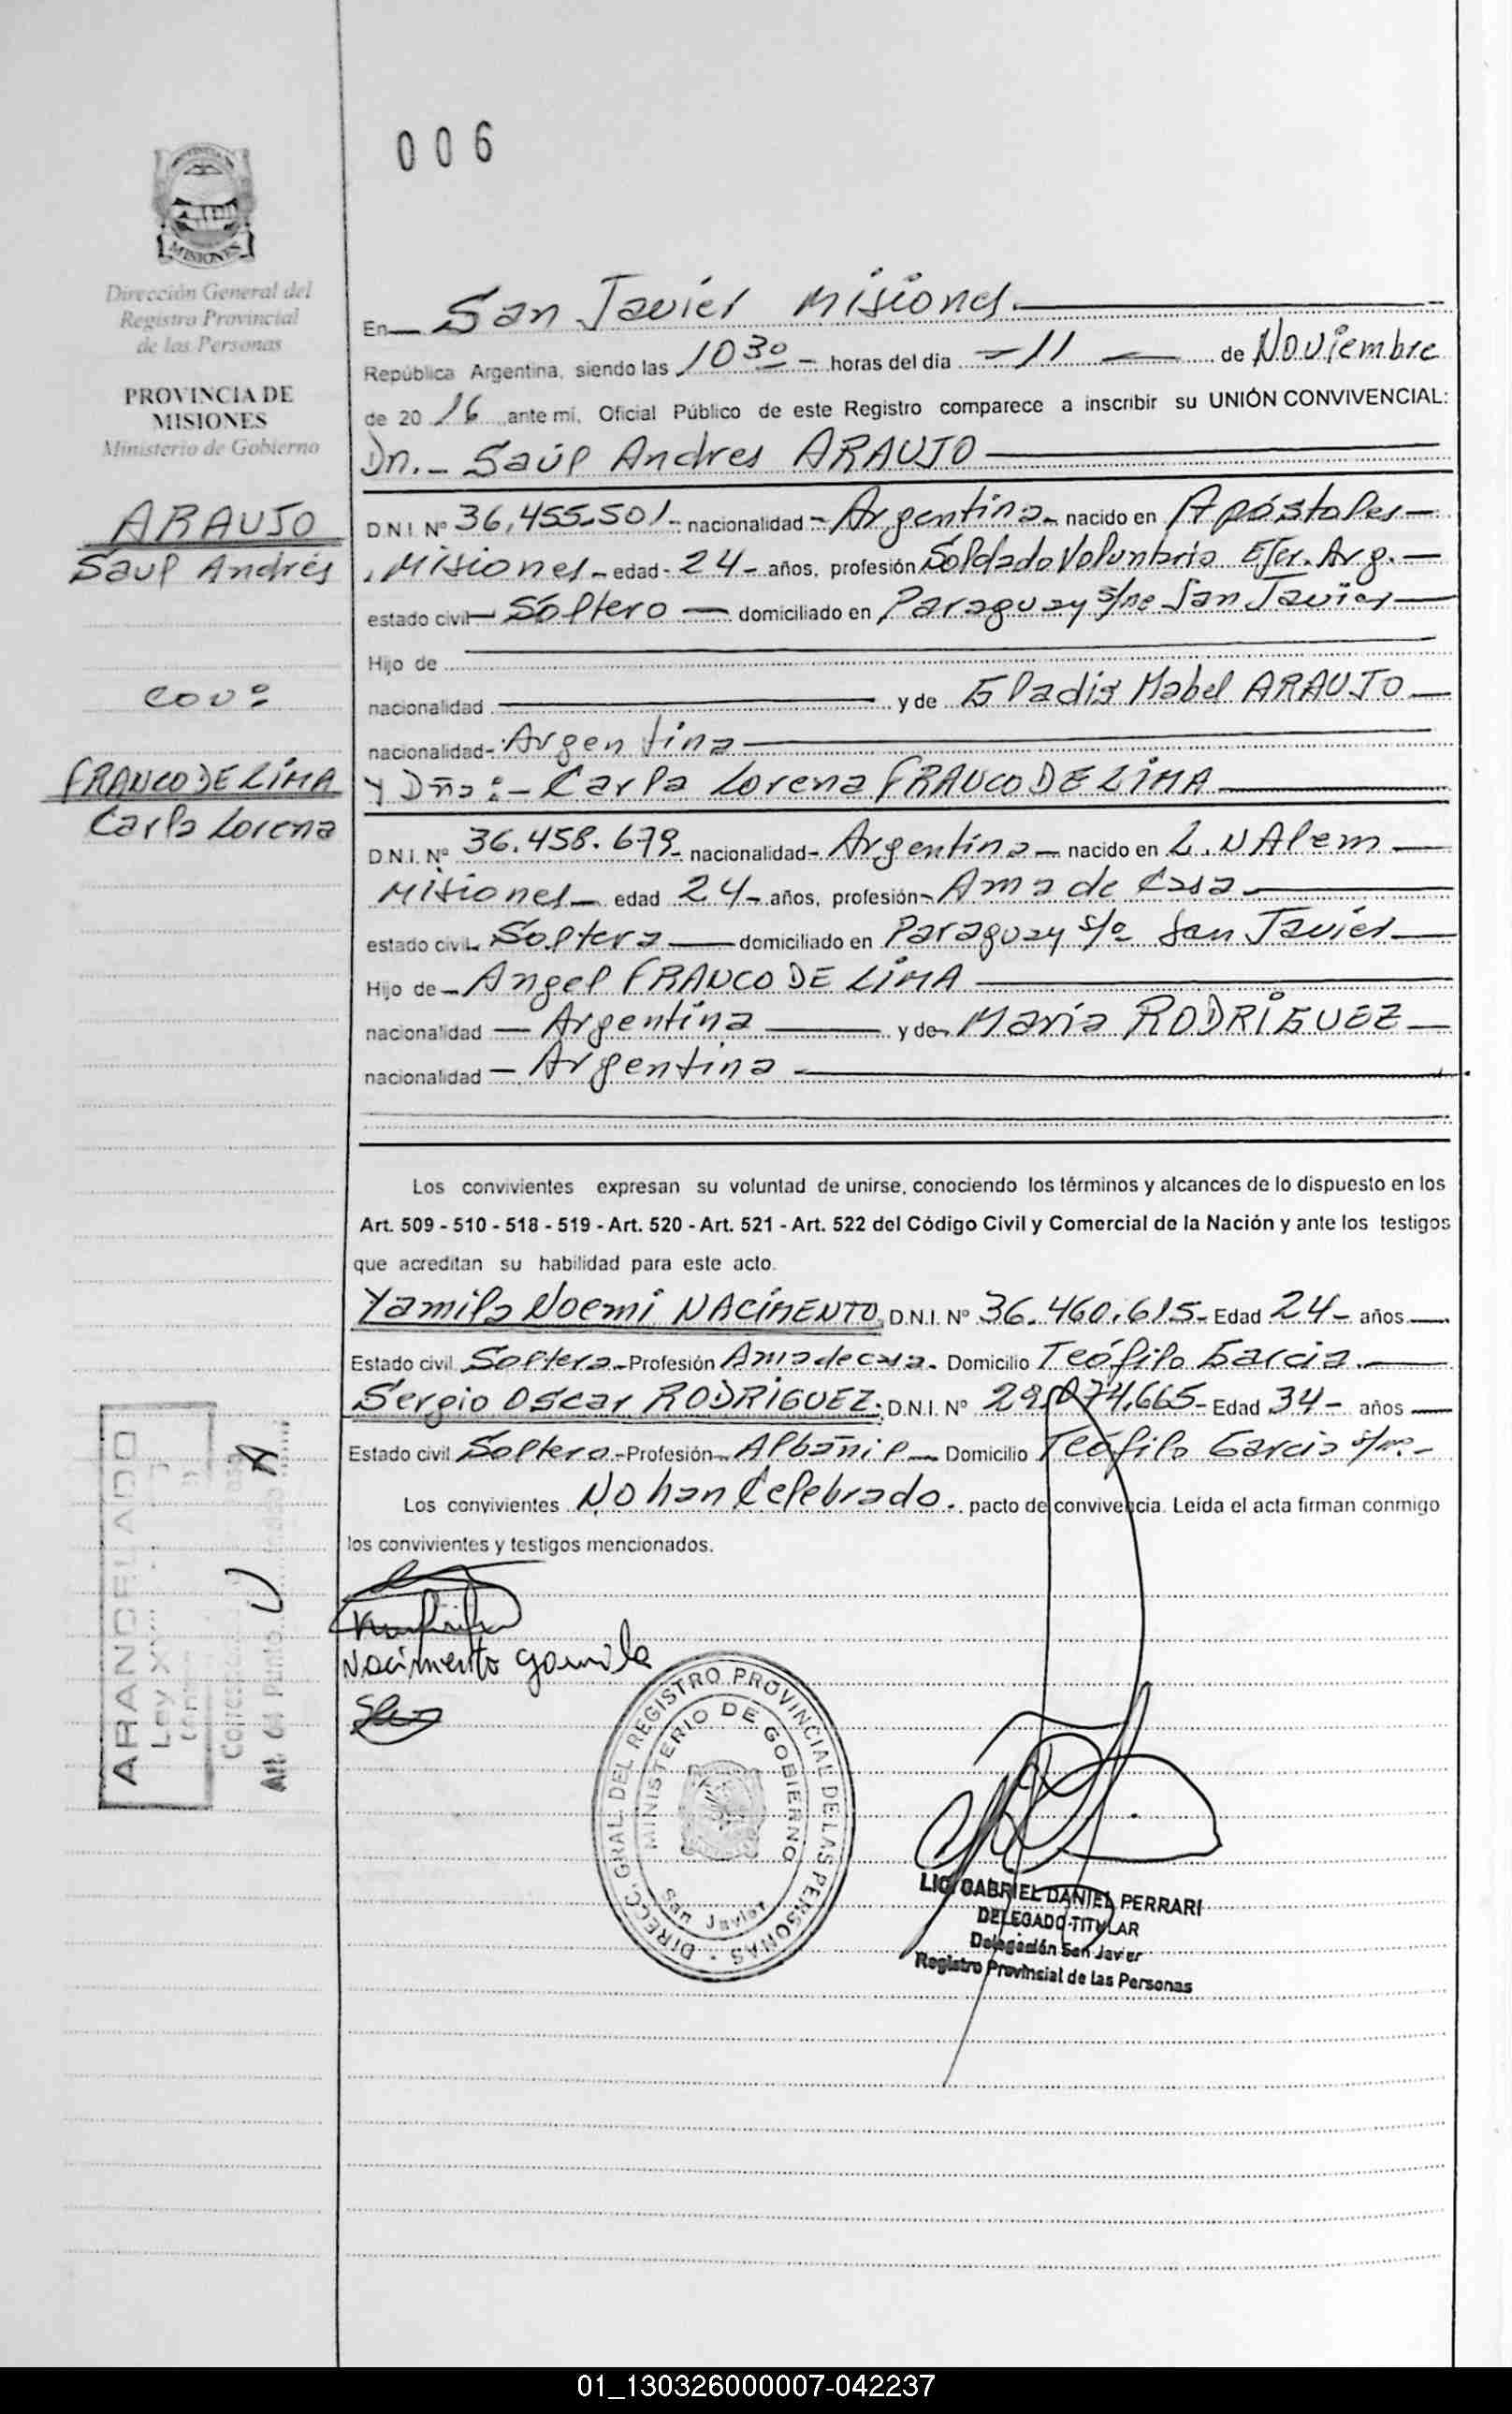 006
MISIONES
Dirección General del
Registro Provincial
de las Personas
PROVINCIA DE
MISIONES
Ministerio de Gobierno
ARAUJO
Saul Andrés
con:
FRANCO DE LIMA
Carla Lorena
En San Javier Misiones
República Argentina, siendo las 10 30 - horas del día - 11 - de Noviembre
de 20 16 ante mí, Oficial Público de este Registro comparece a inscribir su UNIÓN CONVIVENCIAL:
Dn. - Saúl Andres ARAUJO
D.N.I. Nº 36.455.501 - nacionalidad - Argentina - nacido en Apóstoles -
Misiones - edad - 24 - años, profesión Soldado Voluntario Ejer. Arg. -
estado civil - Soltero - domiciliado en Paraguay s/nº San Javier -
Hijo de
nacionalidad y de Gladis Mabel ARAUJO -
nacionalidad - Argentina
y Dña: - Carla Lorena FRANCO DE LIMA
D.N.I. Nº 36.458.679 - nacionalidad - Argentina - nacido en L. N Alem -
Misiones - edad 24 - años, profesión - Ama de Casa
estado civil - Soltera - domiciliado en Paraguay s/nº San Javier -
Hijo de - Angel FRANCO DE LIMA
nacionalidad - Argentina - y de - Maria RODRIGUEZ -
nacionalidad - Argentina
Los convivientes expresan su voluntad de unirse, conociendo los términos y alcances de lo dispuesto en los
Art. 509 - 510 - 518 - 519 - Art. 520 - Art. 521 - Art. 522 del Código Civil y Comercial de la Nación y ante los testigos
que acreditan su habilidad para este acto.
Yamila Noemi NACIMENTO, D.N.I. Nº 36.460.615 - Edad 24 - años
Estado civil Soltera - Profesión Ama de casa - Domicilio Teófilo Garcia.
Sergio Oscar RODRIGUEZ, D.N.I. Nº 29.074.665 - Edad 34 - años
Estado civil Soltero - Profesión - Albañil - Domicilio Teófilo Garcia s/nº -
Los convivientes No han Celebrado. pacto de convivencia. Leída el acta firman conmigo
los convivientes y testigos mencionados.
Nacimento Yamila
DIRECC. GRAL. DEL REGISTRO PROVINCIAL DE LAS PERSONAS
MINISTERIO DE GOBIERNO
San Javier
LIC. GABRIEL DANIEL PERRARI
DELEGADO TITULAR
Delegación San Javier
Registro Provincial de las Personas
ARANCELADO
Ley X
Art. 64 Punto U A
01_130326000007-042237